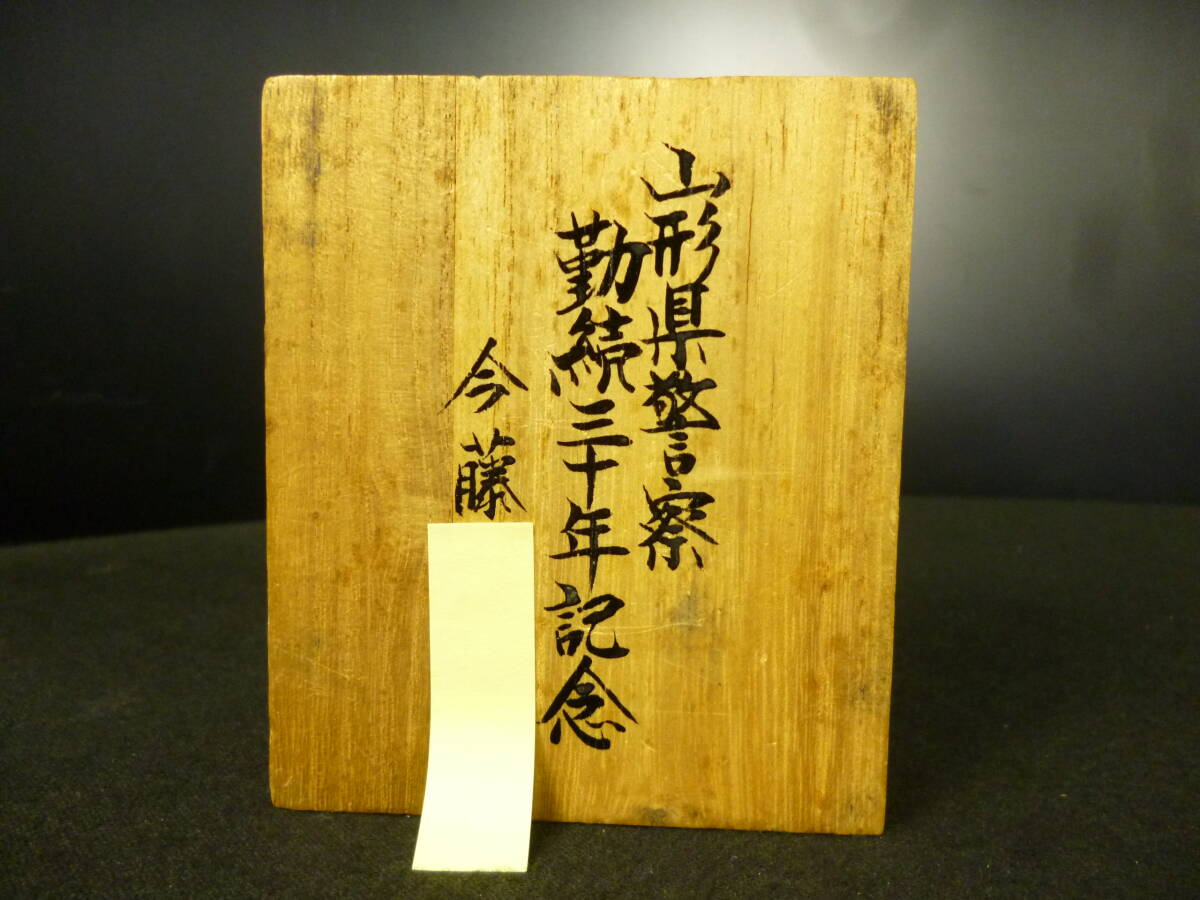 山形県警察
勤続三十年記念
今藤